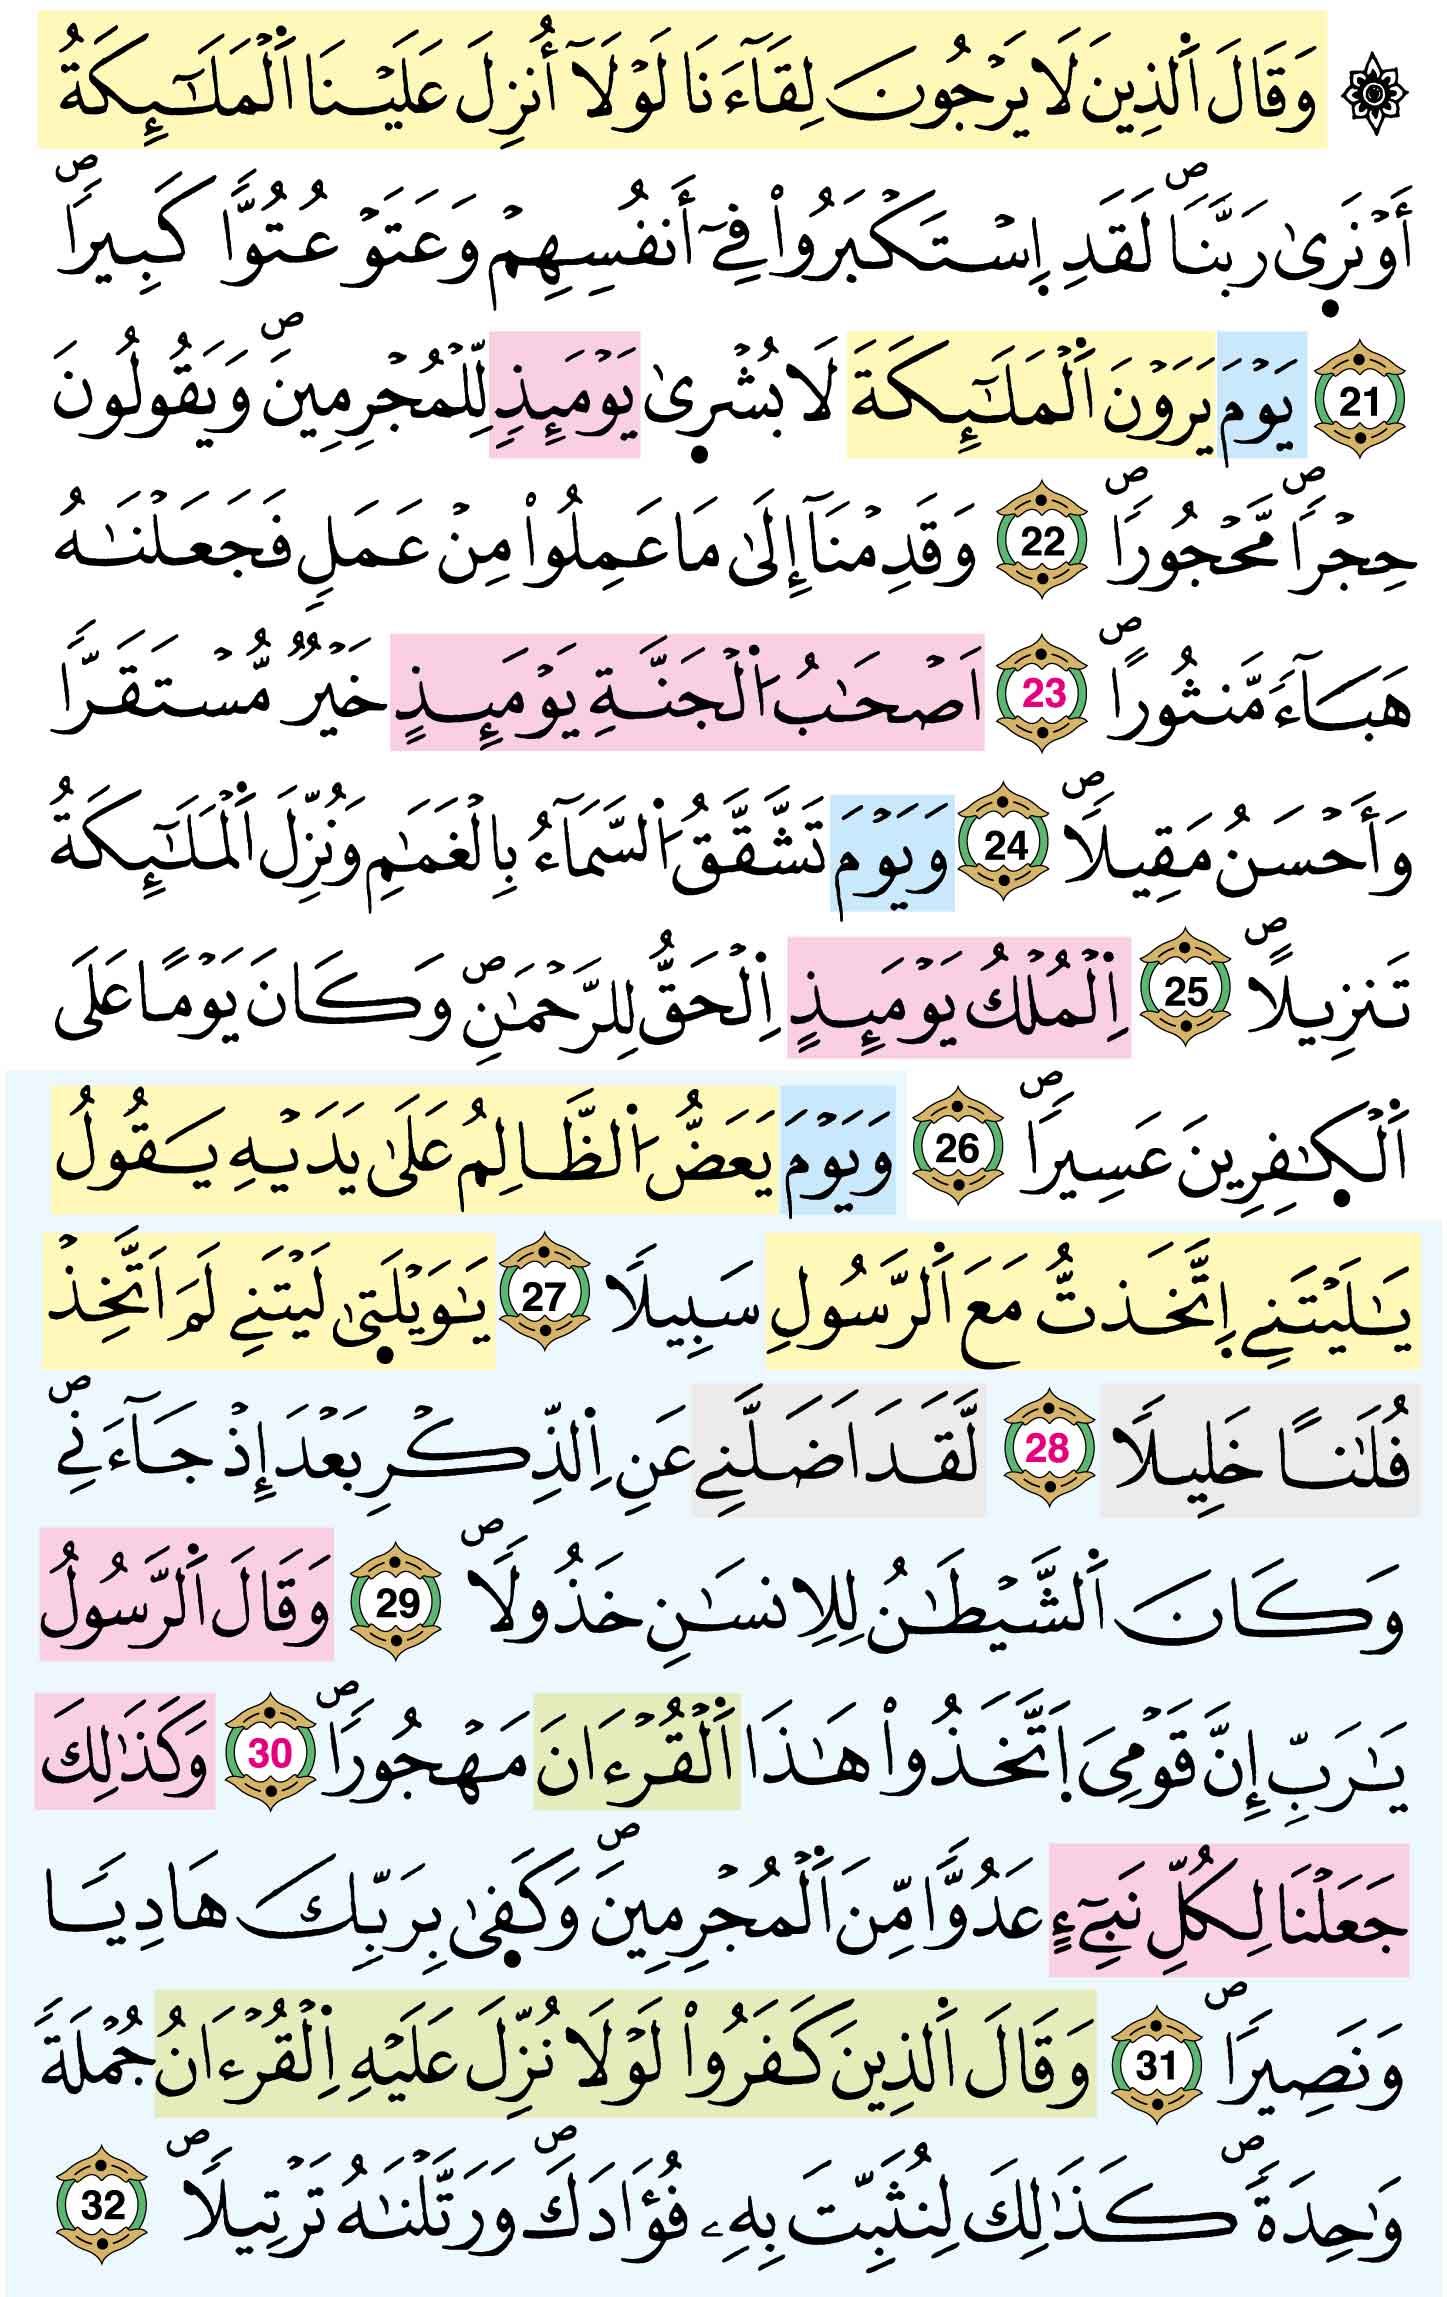 ۞ وَقَالَ اَ۬لذِينَ لَا يَرْجُونَ لِقَآءَنَا لَوْلَآ أُنزِلَ عَلَيْنَا اَ۬لْمَلَٰٓئِكَةُ
أَوْ نَر۪ىٰ رَبَّنَاۖ لَقَدِ اِ۪سْتَكْبَرُواْ فِےٓ أَنفُسِهِمْ وَعَتَوْ عُتُوّاٗ كَبِيراٗۖ
21 يَوْمَ يَرَوْنَ اَ۬لْمَلَٰٓئِكَةَ لَا بُشْر۪ىٰ يَوْمَئِذٖ لِّلْمُجْرِمِينَۖ وَيَقُولُونَ
حِجْراٗۖ مَّحْجُوراٗۖ 22 وَقَدِمْنَآ إِلَىٰ مَا عَمِلُواْ مِنْ عَمَلٖ فَجَعَلْنَٰهُ
هَبَآءٗ مَّنثُوراًۖ 23 اَصْحَٰبُ اُ۬لْجَنَّةِ يَوْمَئِذٍ خَيْرٞ مُّسْتَقَرّاٗ
وَأَحْسَنُ مَقِيلاٗۖ 24 وَيَوْمَ تَشَّقَّقُ اُ۬لسَّمَآءُ بِالْغَمَٰمِ وَنُزِّلَ اَ۬لْمَلَٰٓئِكَةُ
تَنزِيلاًۖ 25 اِ۬لْمُلْكُ يَوْمَئِذٍ اِ۬لْحَقُّ لِلرَّحْمَٰنِۖ وَكَانَ يَوْماً عَلَى
اَ۬لْكٰ۪فِرِينَ عَسِيراٗۖ 26 وَيَوْمَ يَعَضُّ اُ۬لظَّالِمُ عَلَىٰ يَدَيْهِ يَقُولُ
يَٰلَيْتَنِے اِ۪تَّخَذتُّ مَعَ اَ۬لرَّسُولِ سَبِيلاٗ 27 يَٰوَيْلَت۪ىٰ لَيْتَنِے لَمَ اَتَّخِذْ
فُلَٰناً خَلِيلاٗ 28 لَّقَدَ اَضَلَّنِے عَنِ اِ۬لذِّكْرِ بَعْدَ إِذْ جَآءَنِےۖ
وَكَانَ اَ۬لشَّيْطَٰنُ لِلِانسَٰنِ خَذُولاٗۖ 29 وَقَالَ اَ۬لرَّسُولُ
يَٰرَبِّ إِنَّ قَوْمِيَ اَ۪تَّخَذُواْ هَٰذَا اَ۬لْقُرْءَانَ مَهْجُوراٗۖ 30 وَكَذَٰلِكَ
جَعَلْنَا لِكُلِّ نَبِےٓءٍ عَدُوّاٗ مِّنَ اَ۬لْمُجْرِمِينَۖ وَكَف۪ىٰ بِرَبِّكَ هَادِياٗ
وَنَصِيراٗۖ 31 وَقَالَ اَ۬لذِينَ كَفَرُواْ لَوْلَا نُزِّلَ عَلَيْهِ اِ۬لْقُرْءَانُ جُمْلَةٗ
وَٰحِدَةٗۖ كَذَٰلِكَ لِنُثَبِّتَ بِهِۦ فُؤَادَكَۖ وَرَتَّلْنَٰهُ تَرْتِيلاٗۖ 32